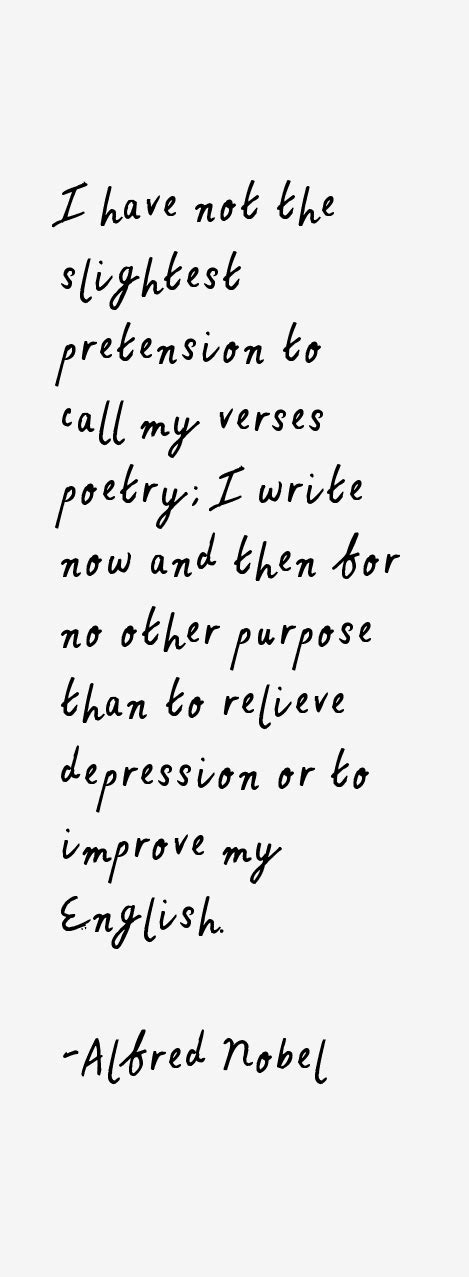 I have not the
slightest
pretension to
call my verses
poetry; I write
now and then for
no other purpose
than to relieve
depression or to
improve my
English.
-Alfred Nobel